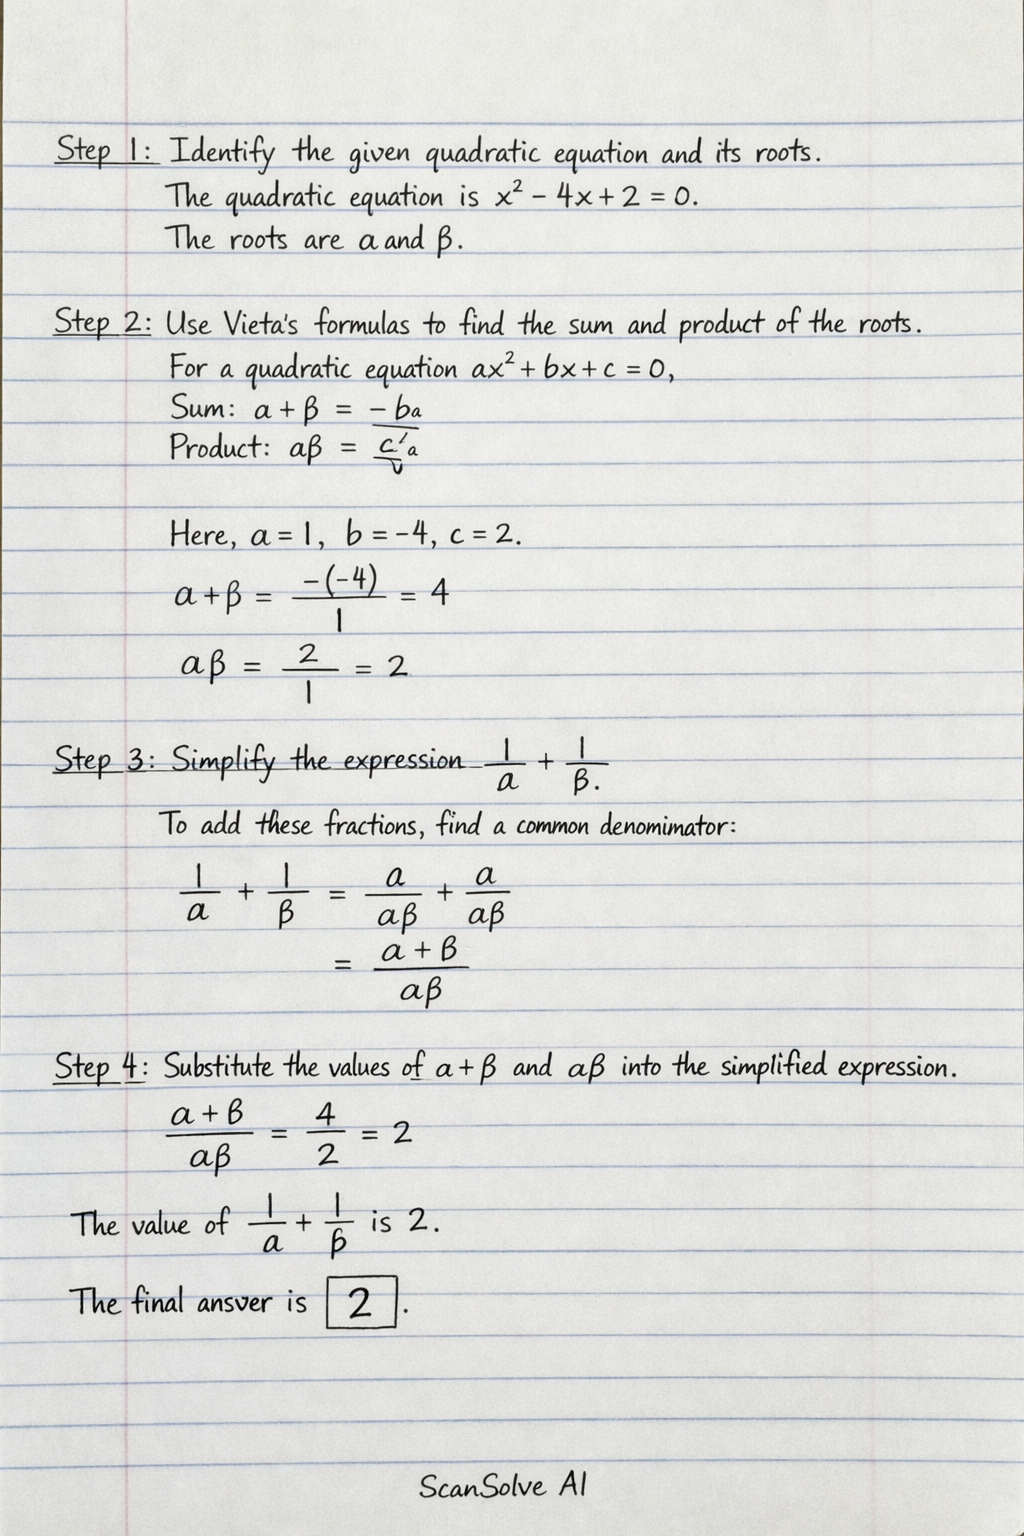 Step 1: Identify the given quadratic equation and its roots.
The quadratic equation is x² − 4x + 2 = 0.
The roots are α and β.
Step 2: Use Vieta's formulas to find the sum and product of the roots.
For a quadratic equation ax² + bx + c = 0,
Sum: α + β = −ba
Product: αβ = c/a
Here, a = 1, b = −4, c = 2.
α + β = −(−4)/1 = 4
αβ = 2/1 = 2
Step 3: Simplify the expression 1/α + 1/β.
To add these fractions, find a common denomimator:
1/α + 1/β = α/αβ + α/αβ
= α + β/αβ
Step 4: Substitute the values of α + β and αβ into the simplified expression.
α + β/αβ = 4/2 = 2
The value of 1/α + 1/β is 2.
The final ansver is 2.
ScanSolve AI